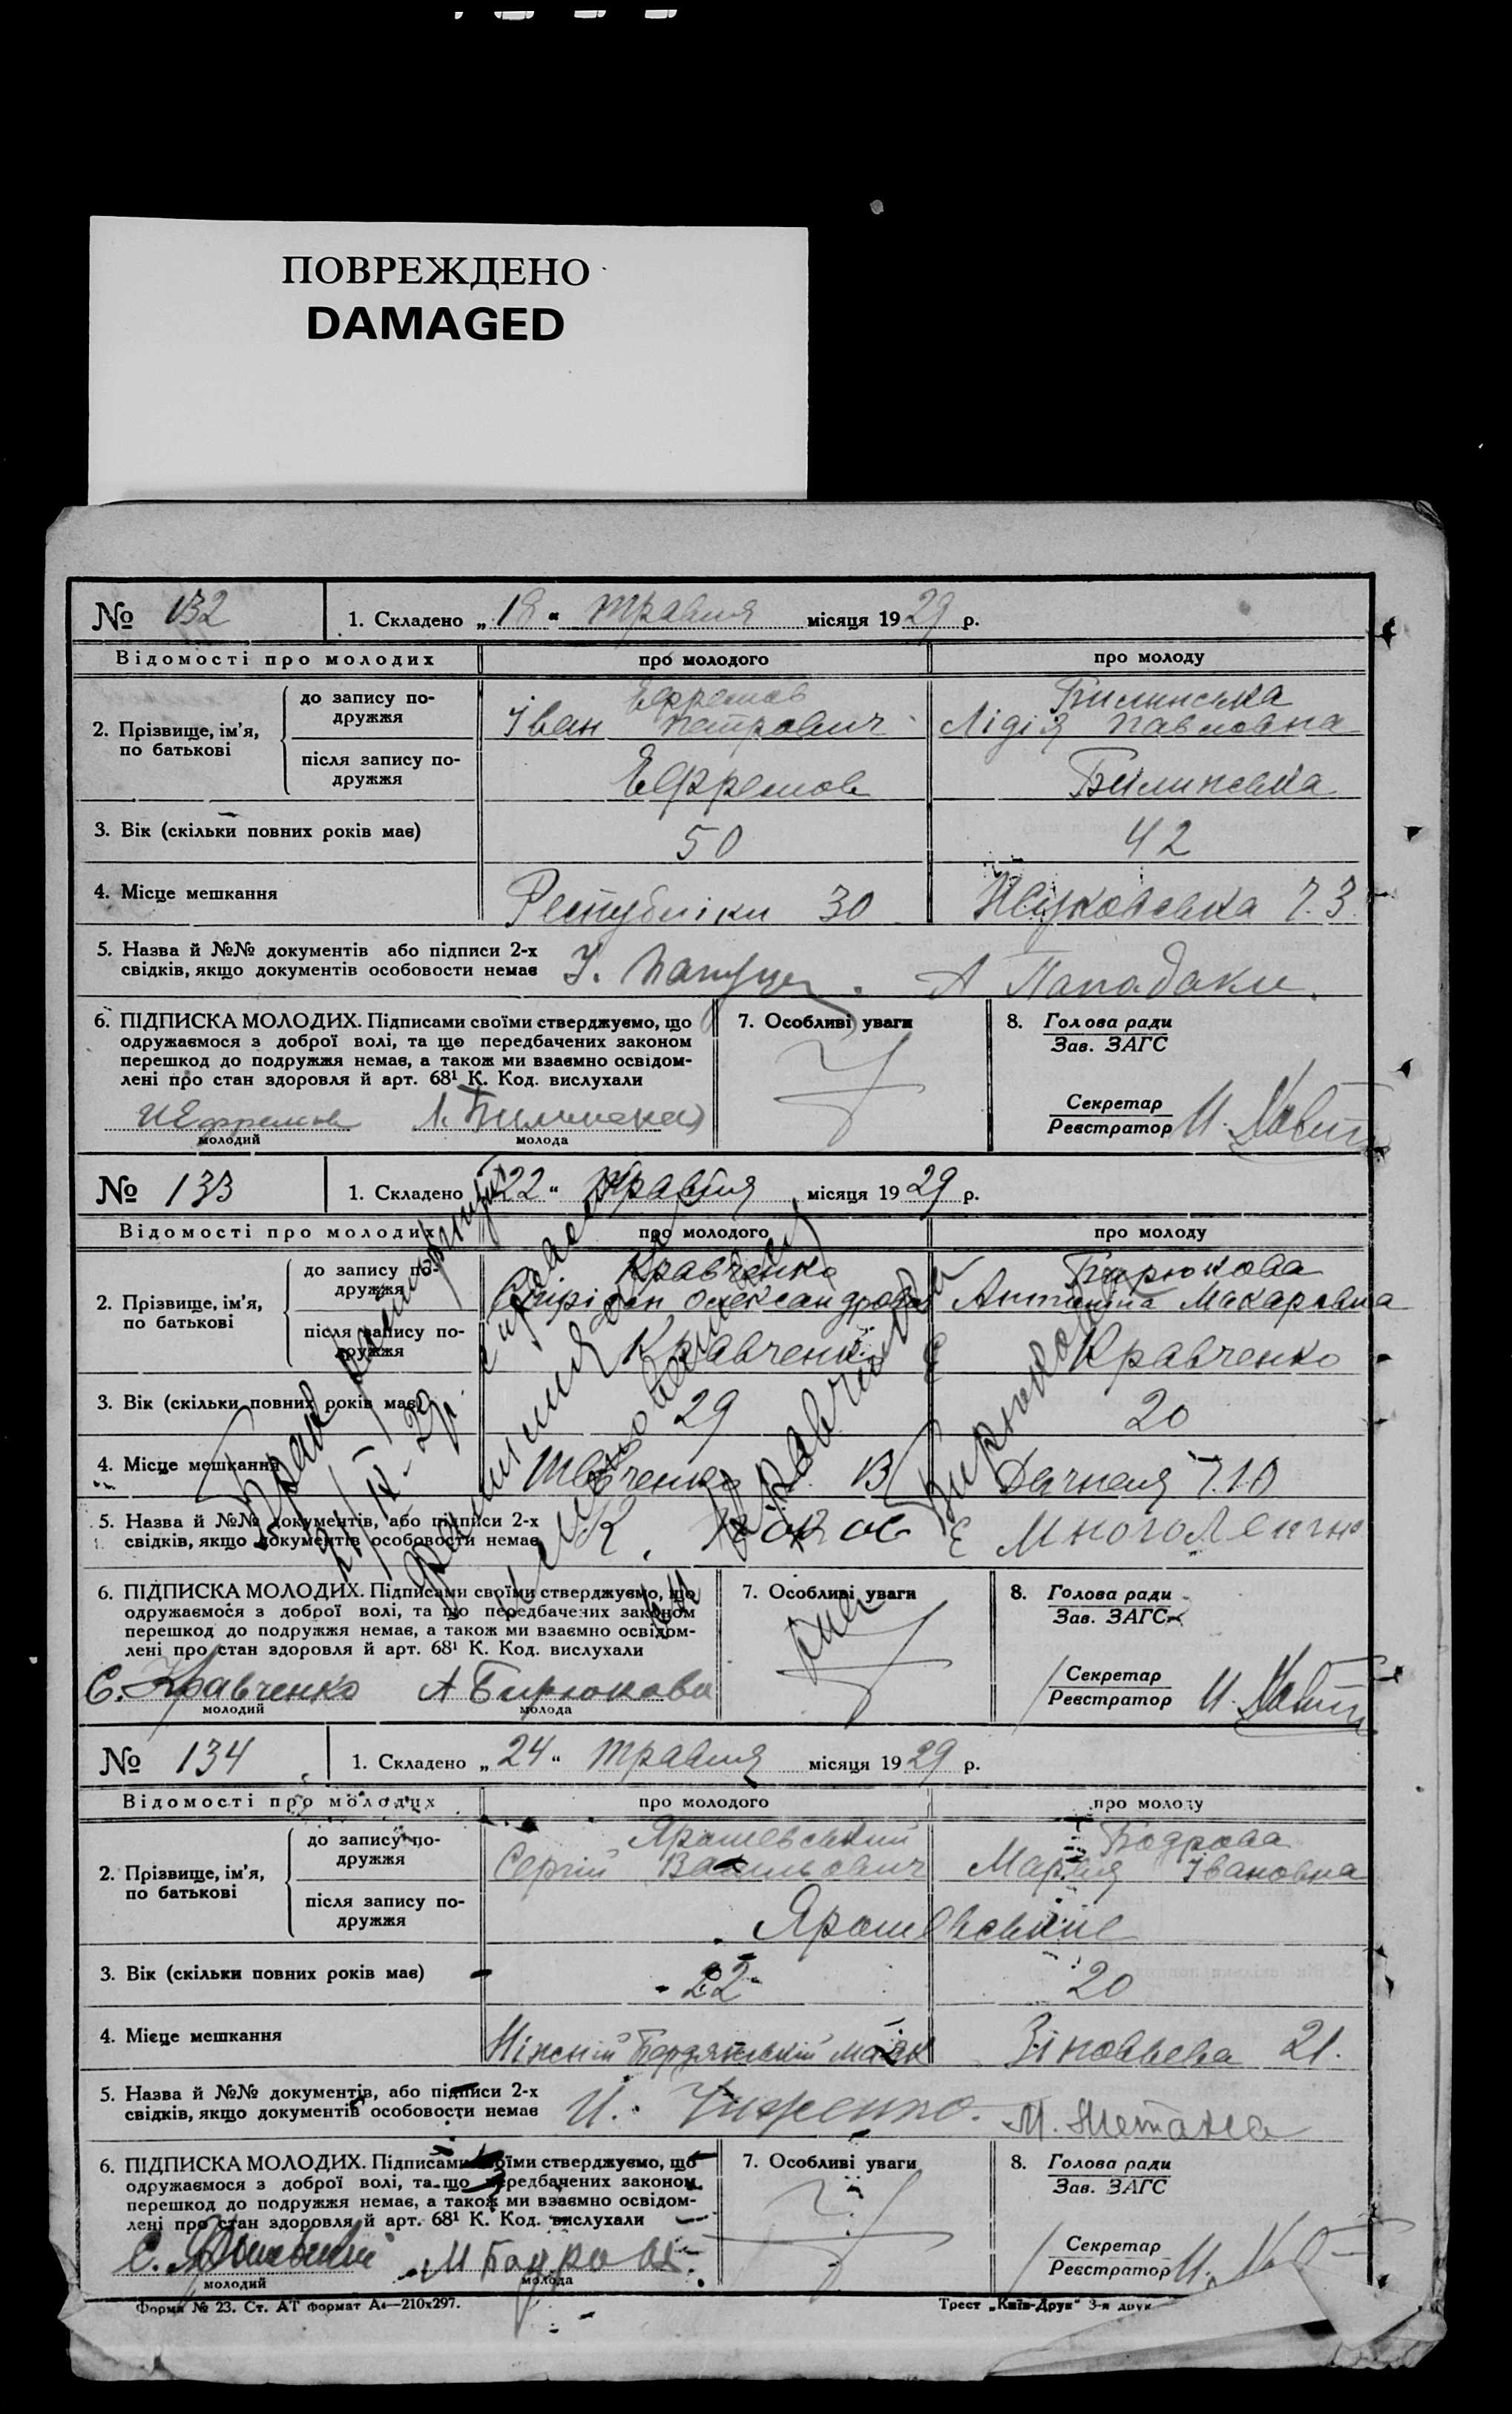 ПОВРЕЖДЕНО
DAMAGED
№ 132 1. Складено „18“ травня місяця 1929 р.
Відомості про молодих про молодого про молоду
2. Прізвище, ім'я, по батькові
до запису подружжя Ефремов Іван Петрович Билинська Лідія Павловна
після запису подружжя Ефремов Билинська
3. Вік (скільки повних років має) 50 42
4. Місце мешкання Республіки 30
5. Назва й №№ документів або підписи 2-х
свідків, якщо документів особовости немає А Пападаки.
6. ПІДПИСКА МОЛОДИХ. Підписами своїми стверджуємо, що
одружаємося з доброї волі, та що передбачених законом
перешкод до подружжя немає, а також ми взаємно освідом-
лені про стан здоров'я й арт. 68¹ К. Код. вислухали
И Ефремов Л. Билинская
молодий молода
7. Особливі уваги
8. Голова ради
Зав. ЗАГС
Секретар
Реєстратор
№ 133 1. Складено „22“ травня місяця 1929 р.
Відомості про молодих про молодого про молоду
2. Прізвище, ім'я, по батькові
до запису подружжя Кравченко Спірідон Олександрович Бирюкова Антоніна Макаровна
після запису подружжя Кравченко Кравченко
3. Вік (скільки повних років має) 29 20
4. Місце мешкання Шевченко Дачная
5. Назва й №№ документів, або підписи 2-х
свідків, якщо документів особовости немає
6. ПІДПИСКА МОЛОДИХ. Підписами своїми стверджуємо, що
одружаємося з доброї волі, та що передбачених законом
перешкод до подружжя немає, а також ми взаємно освідом-
лені про стан здоровля й арт. 68¹ К. Код. вислухали
С. Кравченко А Бирюкова
молодий молода
7. Особливі уваги
8. Голова ради
Зав. ЗАГС
Секретар
Реєстратор
Брак
Кравченко
Бирюкова
№ 134 1. Складено „24“ травня місяця 1929 р.
Відомості про молодих про молодого про молоду
2. Прізвище, ім'я, по батькові
до запису подружжя Ярошевський Сергій Васильович Бодрова Марія Івановна
після запису подружжя Ярошевські
3. Вік (скільки повних років має) 22 20
4. Місце мешкання Ніжній Бердянський маяк Зіновьева 21.
5. Назва й №№ документів, або підписи 2-х
свідків, якщо документів особовости немає
6. ПІДПИСКА МОЛОДИХ. Підписами своїми стверджуємо, що
одружаємося з доброї волі, та що передбачених законом
перешкод до подружжя немає, а також ми взаємно освідом-
лені про стан здоровля й арт. 68¹ К. Код. вислухали
М Бодрова
молодий молода
7. Особливі уваги
8. Голова ради
Зав. ЗАГС
Секретар
Реєстратор
Форма № 23. Ст. АТ формат А₄—210x297.
Трест „Київ-Друк“ 3-я друк